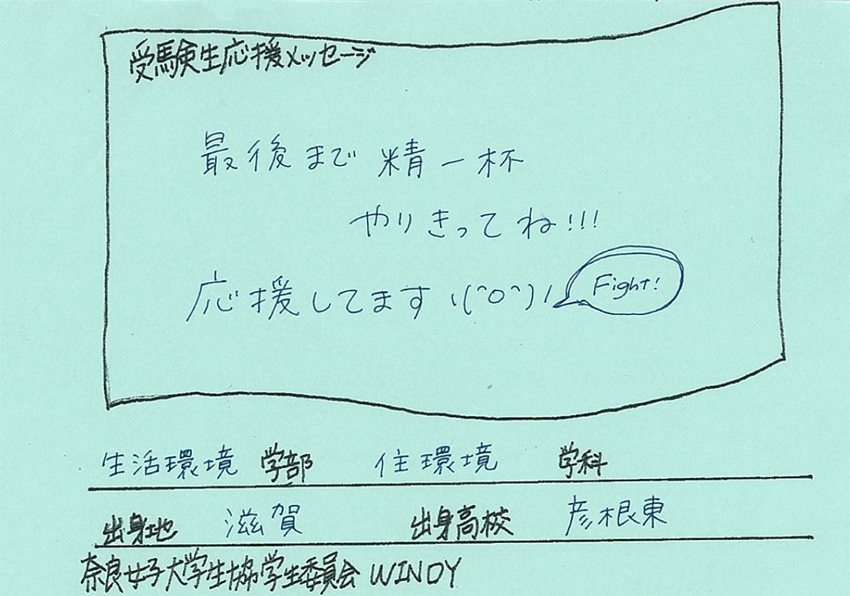 受験生応援メッセージ
最後まで精一杯
やりきってね!!!
応援してます ヽ(^o^)ノ Fight!
生活環境 学部 住環境 学科
出身地 滋賀 出身高校 彦根東
奈良女子大学生協学生委員会 WINDY